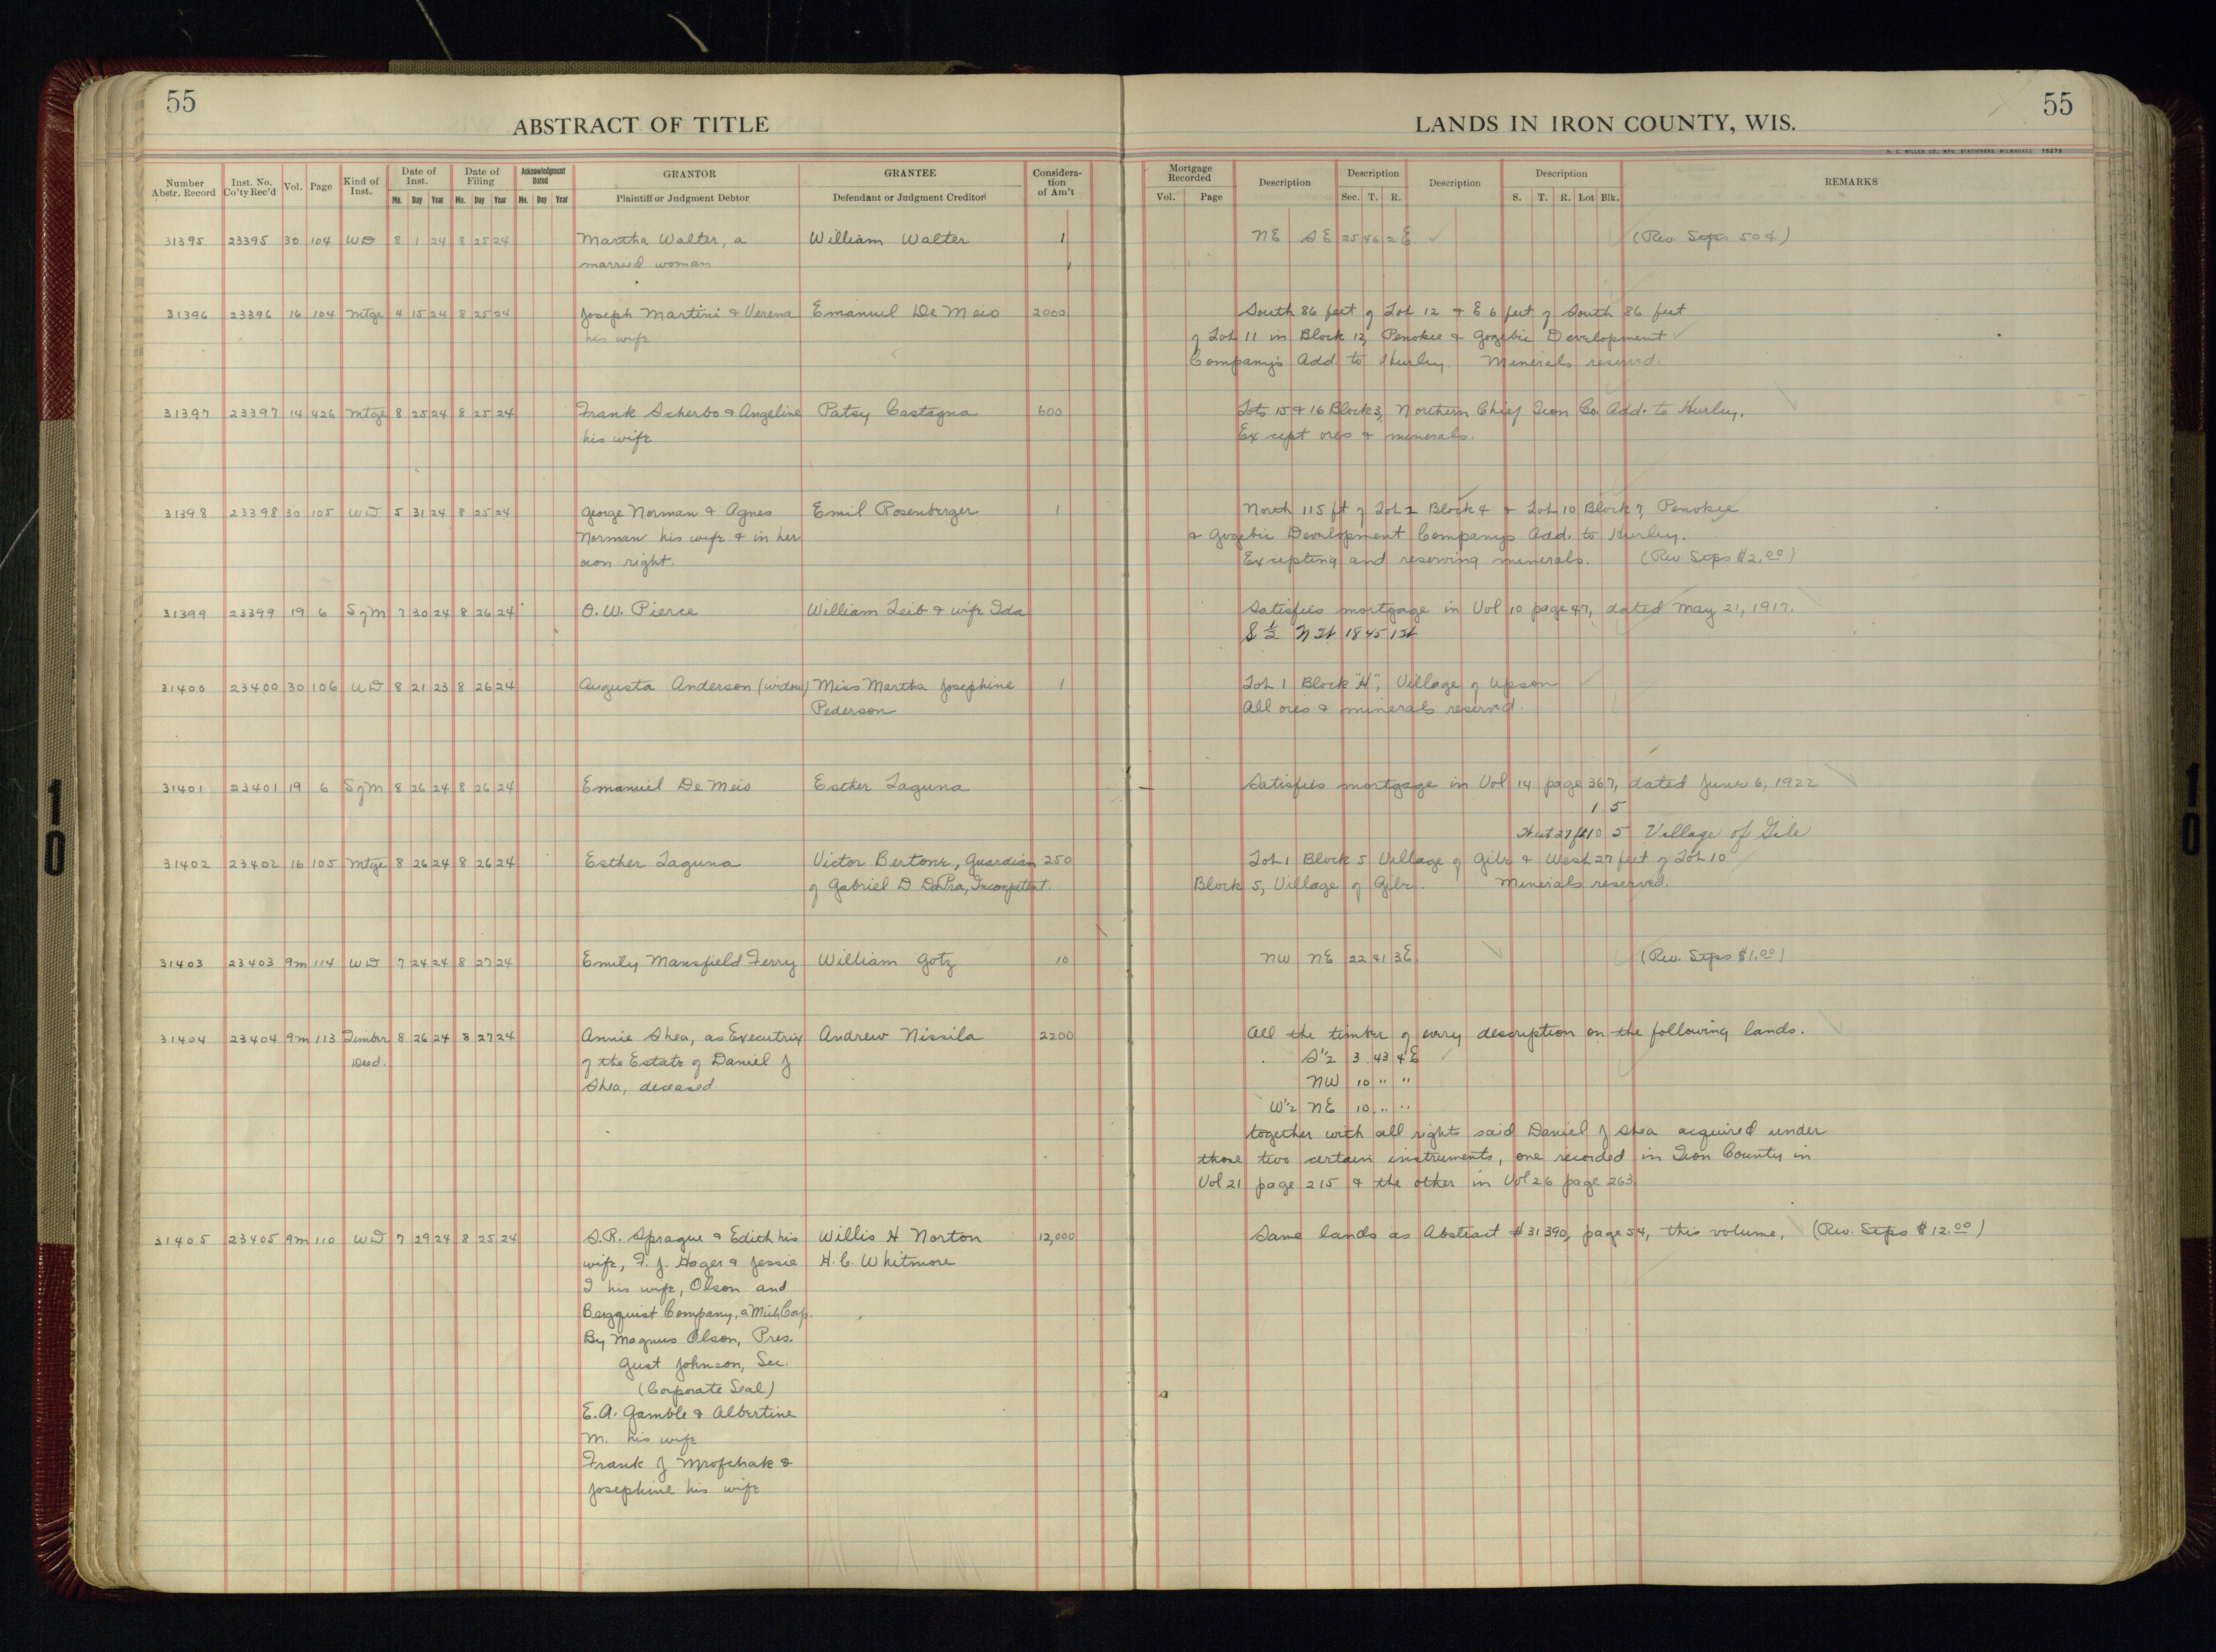 55
ABSTRACT OF TITLE
LANDS IN IRON COUNTY, WIS.
55
H. C. MILLER CO., MFG. STATIONERS, MILWAUKEE
Number Abstr. Record Inst. No. Co'ty Rec'd Vol. Page Kind of Inst. Date of Inst. Mo. Day Year Date of Filing Mo. Day Year Acknowledgment Dated Mo. Day Year GRANTOR Plaintiff or Judgment Debtor GRANTEE Defendant or Judgment Creditor Consideration of Am't Mortgage Recorded Vol. Page Description Description Sec. T. R. Description Description S. T. R. Lot Blk. REMARKS
31395 23395 30 104 WD 8 1 24 8 25 24 Martha Walter, a William Walter 1 NE SE 25 46 2E (Rev. Stps 50¢)
married woman
31396 23396 16 104 Mtge 4 15 24 8 25 24 Joseph Martini & Verena Emanuel De Meio 2000 South 86 feet of Lot 12 & E 6 feet of South 86 feet
his wife of Lot 11 in Block 12, Penokee & Gogebic Development
Company's Add. to Hurley. Minerals reserved.
31397 23397 14 426 Mtge 8 25 24 8 25 24 Frank Scherbo & Angeline Patsy Castagna 600 Lots 15 & 16 Block 3, Northern Chief Iron Co. Add. to Hurley.
his wife Except ores & minerals.
31398 23398 30 105 WD 5 31 24 8 25 24 George Norman & Agnes Emil Rosenberger 1 North 115 ft of Lot 2 Block 4 & Lot 10 Block 7, Penokie
Norman his wife & in her & Gogebic Development Companys Add. to Hurley.
own right. Excepting and reserving minerals. (Rev. Stps $2.00)
31399 23399 19 6 S of M 7 30 24 8 26 24 O. W. Pierce William Leib & wife Ida Satisfies mortgage in Vol 10 page 47, dated May 21, 1917.
S ½ NW 18 45 1W
31400 23400 30 106 WD 8 21 23 8 26 24 Augusta Anderson (widow) Miss Martha Josephine 1 Lot 1 Block "H", Village of Upson
Pederson All ores & minerals reserved.
31401 23401 19 6 S of M 8 26 24 8 26 24 Emanuel De Meio Esther Laguna Satisfies mortgage in Vol 14 page 367, dated June 6, 1922
1 5
West 27 ft 10 5 Village of Gile
31402 23402 16 105 Mtge 8 26 24 8 26 24 Esther Laguna Victor Bertone, Guardian 250 Lot 1 Block 5 Village of Gile & West 27 feet of Lot 10
of Gabriel D DaPra, Incompetent. Block 5, Village of Gile. Minerals reserved.
31403 23403 9m 114 WD 7 24 24 8 27 24 Emily Mansfield Ferry William Gotz 10 NW NE 22 41 3E (Rev. Stps $1.00)
31404 23404 9m 113 Timber 8 26 24 8 27 24 Annie Shea, as Executrix Andrew Nissila 2200 All the timber of every description on the following lands.
Deed. of the Estate of Daniel J S½ 3 43 4E
Shea, deceased. NW 10 " "
W½ NE 10 " "
together with all rights said Daniel J Shea acquired under
those two certain instruments, one recorded in Iron County in
Vol 21 page 215 & the other in Vol 26 page 263
31405 23405 9m 110 WD 7 29 24 8 25 24 S.R. Sprague & Edith his Willis H Norton 12,000 Same lands as Abstract #31390, page 54, this volume. (Rev. Stps $12.00)
wife, F. J. Hager & Jessie H. C. Whitmore
I his wife, Olson and
Bergquist Company, a Mich Corp.
By Magnus Olson, Pres.
Gust Johnson, Sec.
(Corporate Seal)
E. A. Gamble & Albertine
M. his wife
Frank J
Josephine his wife
10
10